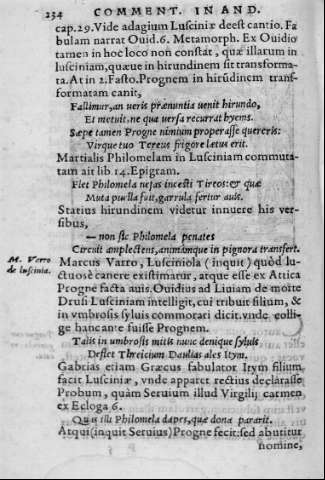 234 COMMENT. IN AND.
cap.29. Vide adagium Lusciniæ deest cantio. Fa
bulam narrat Ouid.6. Metamorph. Ex Ouidio
tamen in hoc loco non constat, quæ illarum in
lusciniam, quæue in hirundinem sit transforma-
ta. At in 2. Fasto. Prognem in hirūdinem trans-
formatam canit,
Fallimur, an ueris prænuntia uenit hirundo,
Et metuit, ne qua uersa recurrat hyems.
Sæpe tamen Progne nimium properasse quereris:
Virque tuo Tereus frigore lætus erit.
Martialis Philomelam in Lusciniam commuta-
tam ait lib 14. Epigram.
Flet Philomela nefas incesti Tireos: et quæ
Muta puella fuit, garrula fertur auis.
Statius hirundinem videtur innuere his ver-
sibus,
— non sic Philomela penates
Circuit amplectens, animamque in pignora transfert.
M. Varro
de luscinia.
Marcus Varro, Lusciniola (inquit) quòd lu-
ctuosè canere existimatur, atque esse ex Attica
Progne facta auis. Ouidius ad Liuiam de morte
Drusi Lusciniam intelligit, cui tribuit filium, &
in vmbrosis syluis commorari dicit. vnde colli-
ge hanc ante fuisse Prognem.
Talis in umbrosis mitis nunc denique syluis
Deflet Threicium Daulias ales Itym.
Gabrias etiam Græcus fabulator Itym filium
facit Lusciniæ, vnde apparet rectius declarasse
Probum, quàm Seruium illud Virgilij carmen
ex Ecloga 6.
Quas illi Philomela dapes, quæ dona pararit.
Atqui (inquit Seruius) Progne fecit: sed abutitur
nomine,